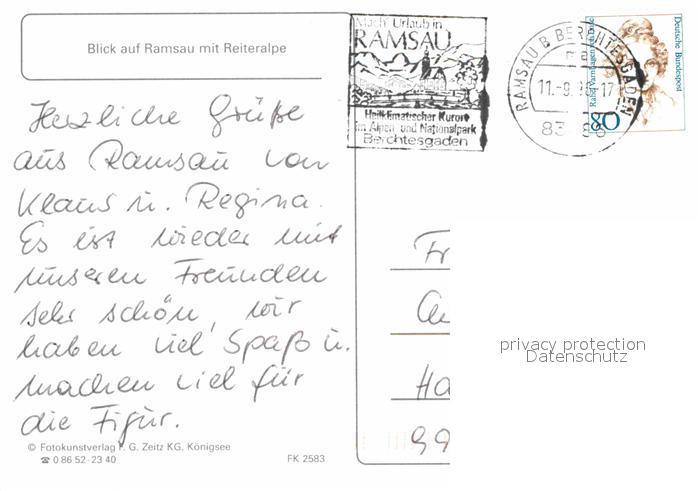 Blick auf Ramsau mit Reiteralpe
Mach' Urlaub in
RAMSAU
Heilklimatischer Kurort
im Alpen- und Nationalpark
Berchtesgaden
RAMSAU B BERCHTESGADEN
11.-9.
17
83
Deutsche Bundespost
80
Herzliche Grüße
aus Ramsau von
Klaus u. Regina.
Es ist wieder mit
unseren Freunden
sehr schön, wir
haben viel Spaß u.
machen viel für
die Figur.
Fr
Ha
99
privacy protection
Datenschutz
© Fotokunstverlag F. G. Zeitz KG, Königsee
☎ 0 86 52-23 40
FK 2583